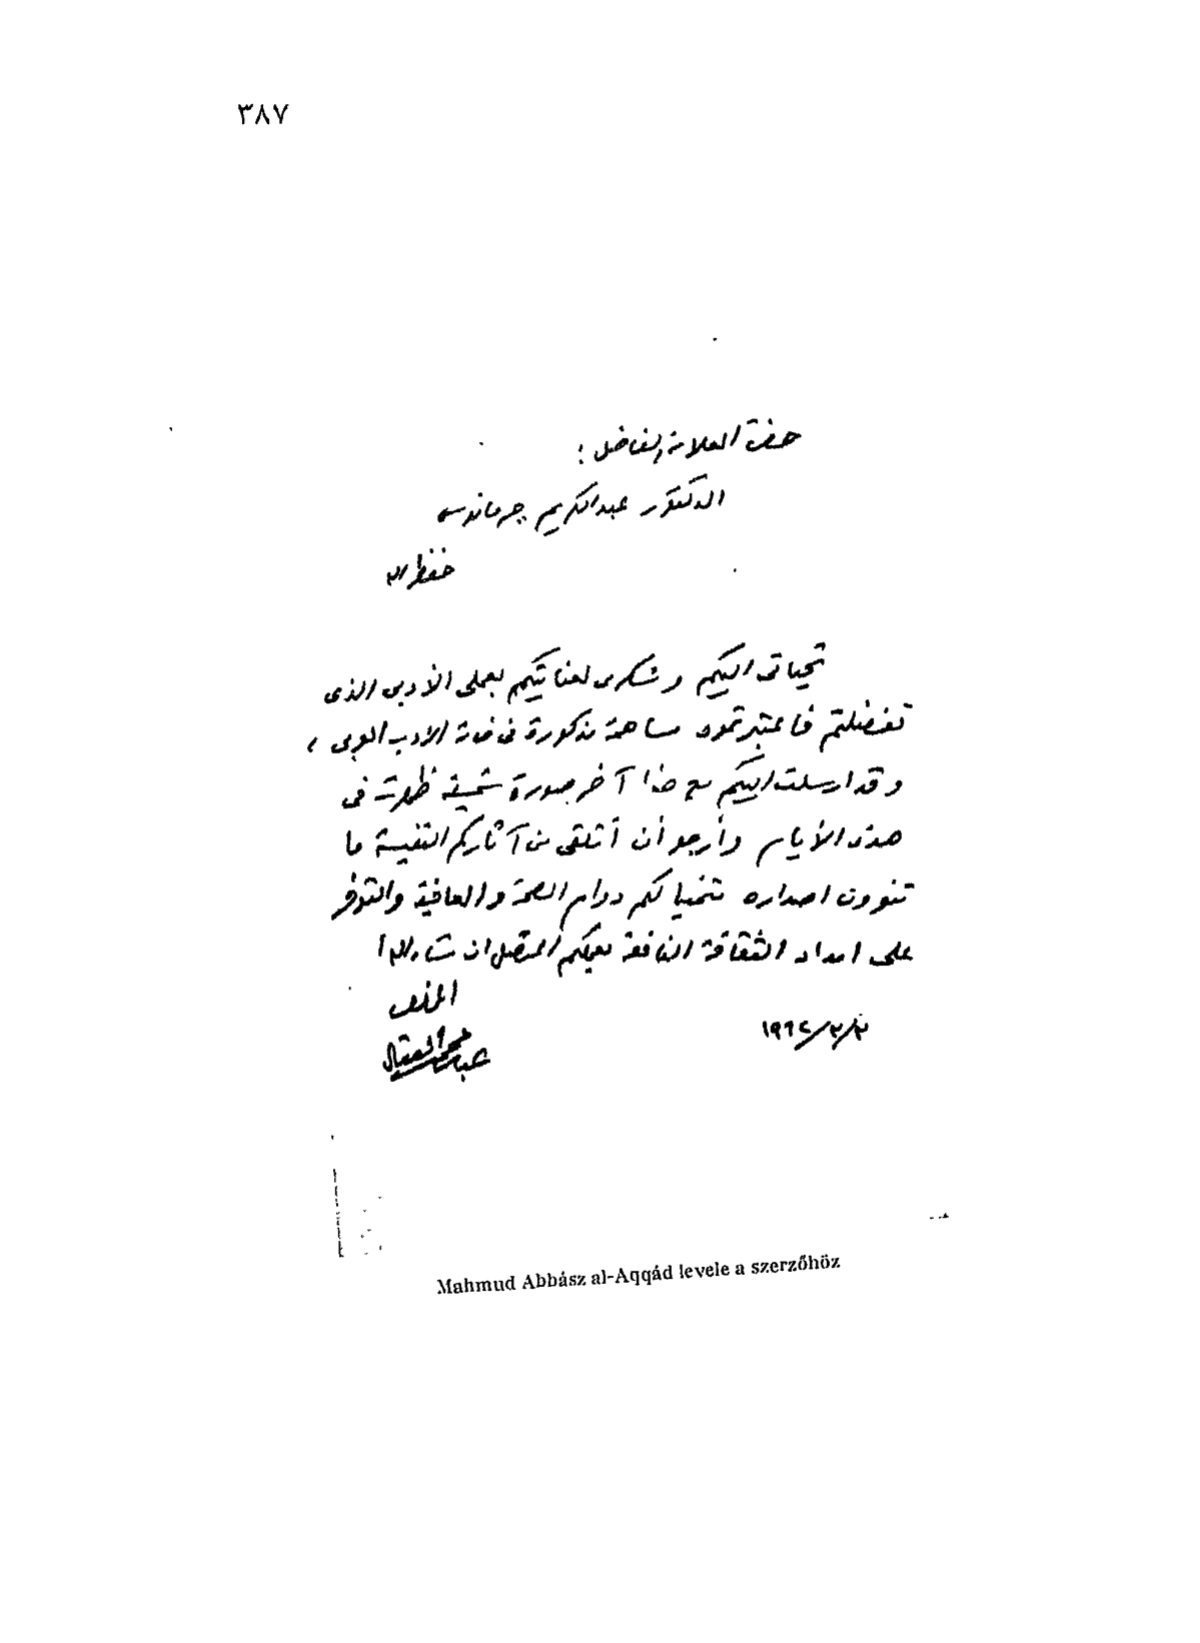 ٣٨٧
حضرة العلامة الفاضل :
الدكتور عبد الكريم جرمانوس
حفظه الله
تحياتى اليكم وشكرى لعنايتكم بعملى الأدبى الذى
تفضلتم فاعتبرتموه مساهمة مذكورة فى خدمة الادب العربى ،
وقد ارسلت اليكم مع هذا آخر صورة شمسية ظهرت فى
هذه الأيام وأرجو أن أتلقى من آثاركم النفيسة ما
تنوون اصداره متمنيا لكم دوام الصحة والعافية والتوفر
على امداد الثقافة النافعة بعملكم المتصل ان شاء الله
المخلص
عباس محمود العقاد
Mahmud Abbász al-Aqqád levele a szerzőhöz